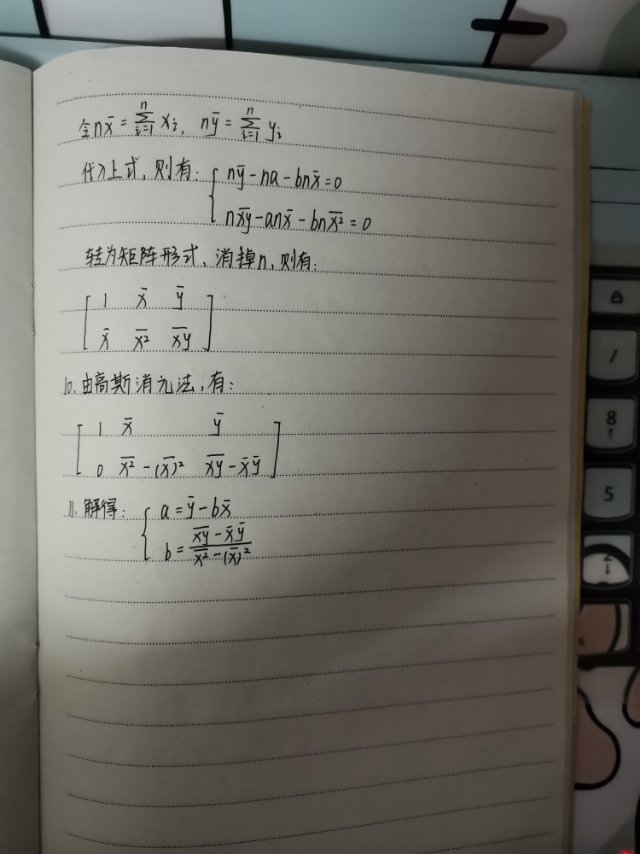 令 nx̄ = Σ_{i=1}^{n} xᵢ, nȳ = Σ_{i=1}^{n} yᵢ
代入上式，则有：{ nȳ-na-bnx̄=0
n\overline{xy}-anx̄-bn\overline{x²}=0
转为矩阵形式、消掉n，则有：
[ 1 x̄ ȳ
x̄ \overline{x²} \overline{xy} ]
10. 由高斯消元法，有：
[ 1 x̄ ȳ
0 \overline{x²}-(x̄)² \overline{xy}-x̄ȳ ]
11. 解得：{ a=ȳ-bx̄
b=\frac{\overline{xy}-x̄ȳ}{\overline{x²}-(x̄)²}
/
8
5
2